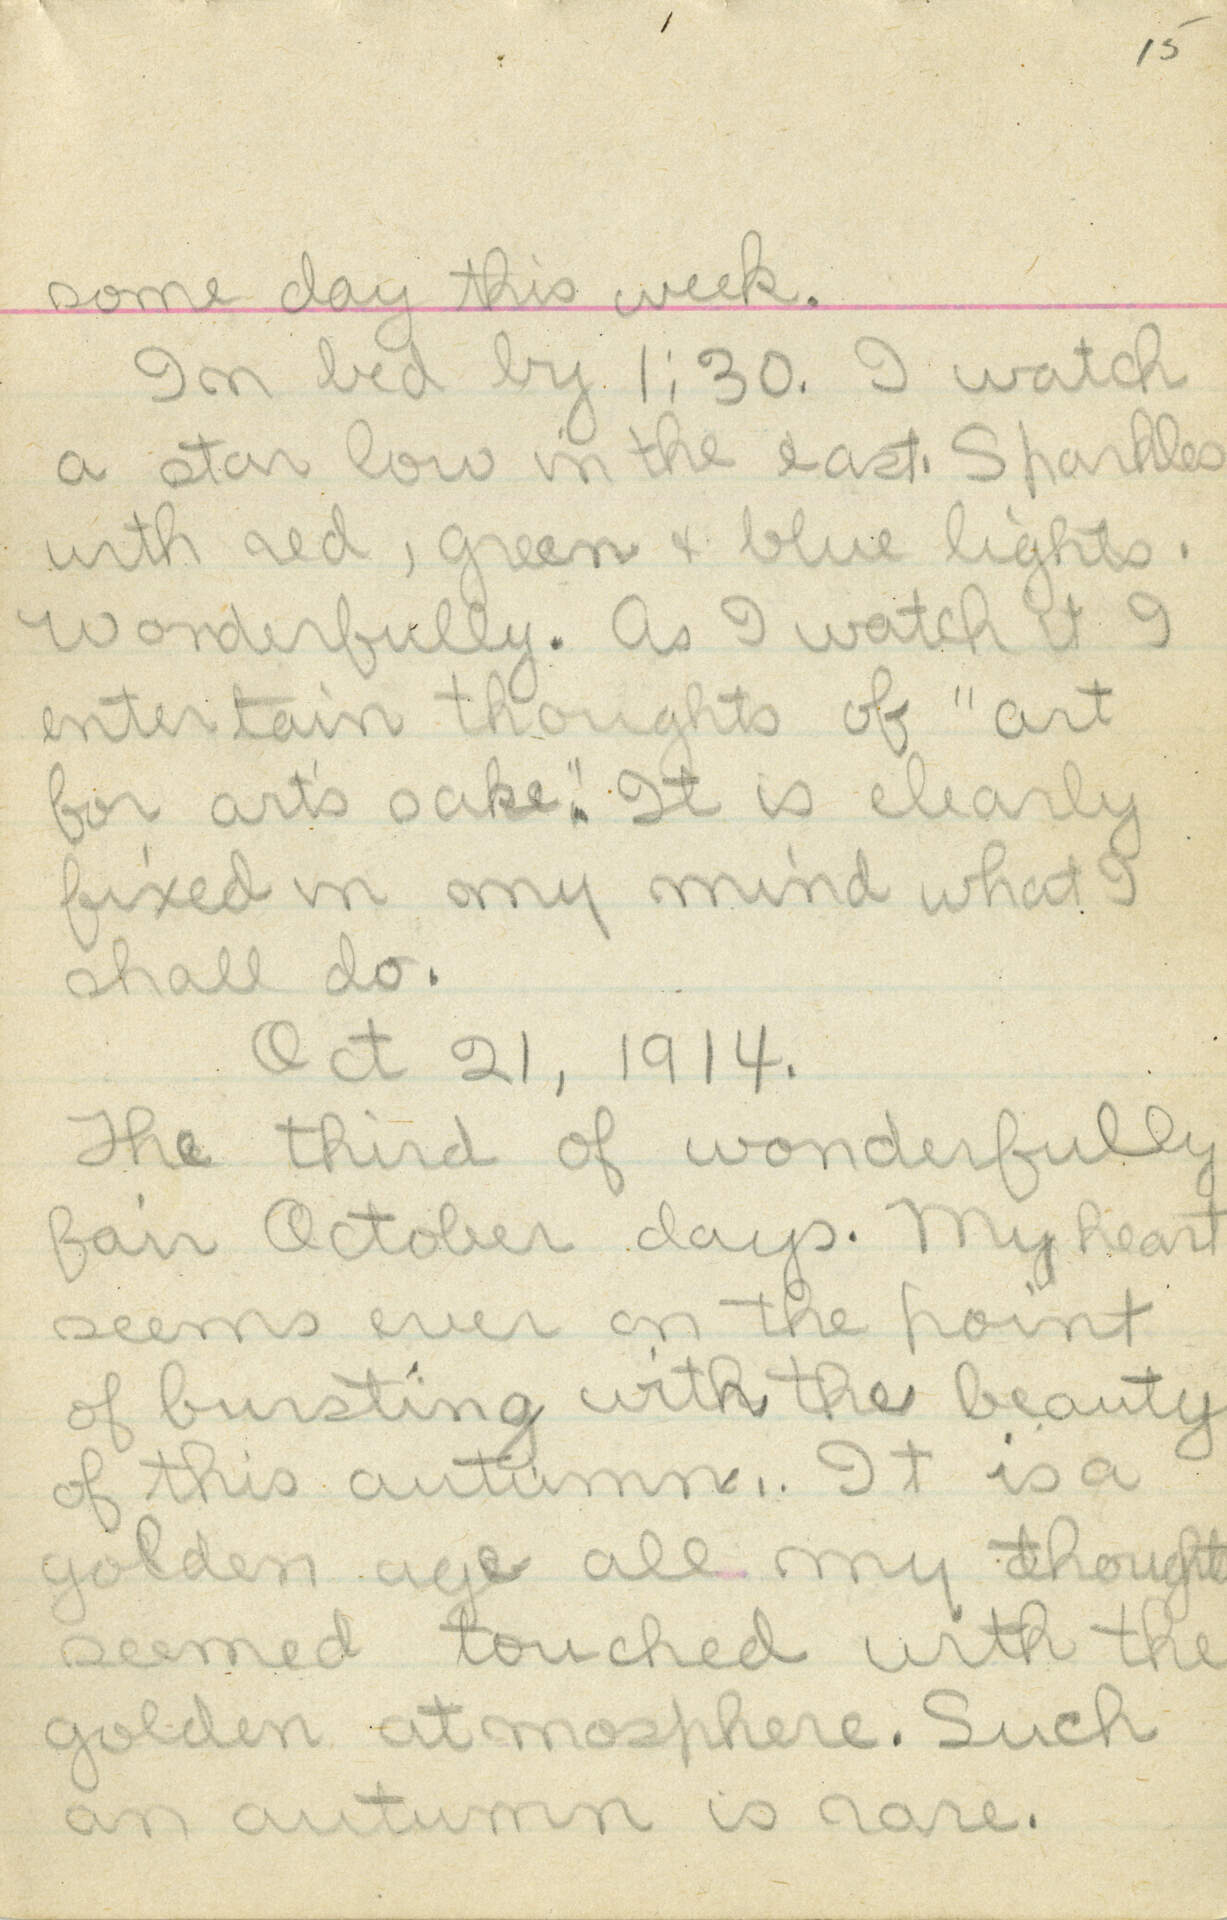 15
some day this week.
In bed by 1:30. I watch
a star low in the east. Sparkles
with red, green & blue lights.
Wonderfully. As I watch it I
entertain thoughts of "art
for art's sake". It is clearly
fixed in my mind what I
shall do.
Oct 21, 1914.
The third of wonderfully
fair October days. My heart
seems ever on the point
of bursting with the beauty
of this autumn. It is a
golden age all my thoughts
seemed touched with the
golden atmosphere. Such
an autumn is rare.